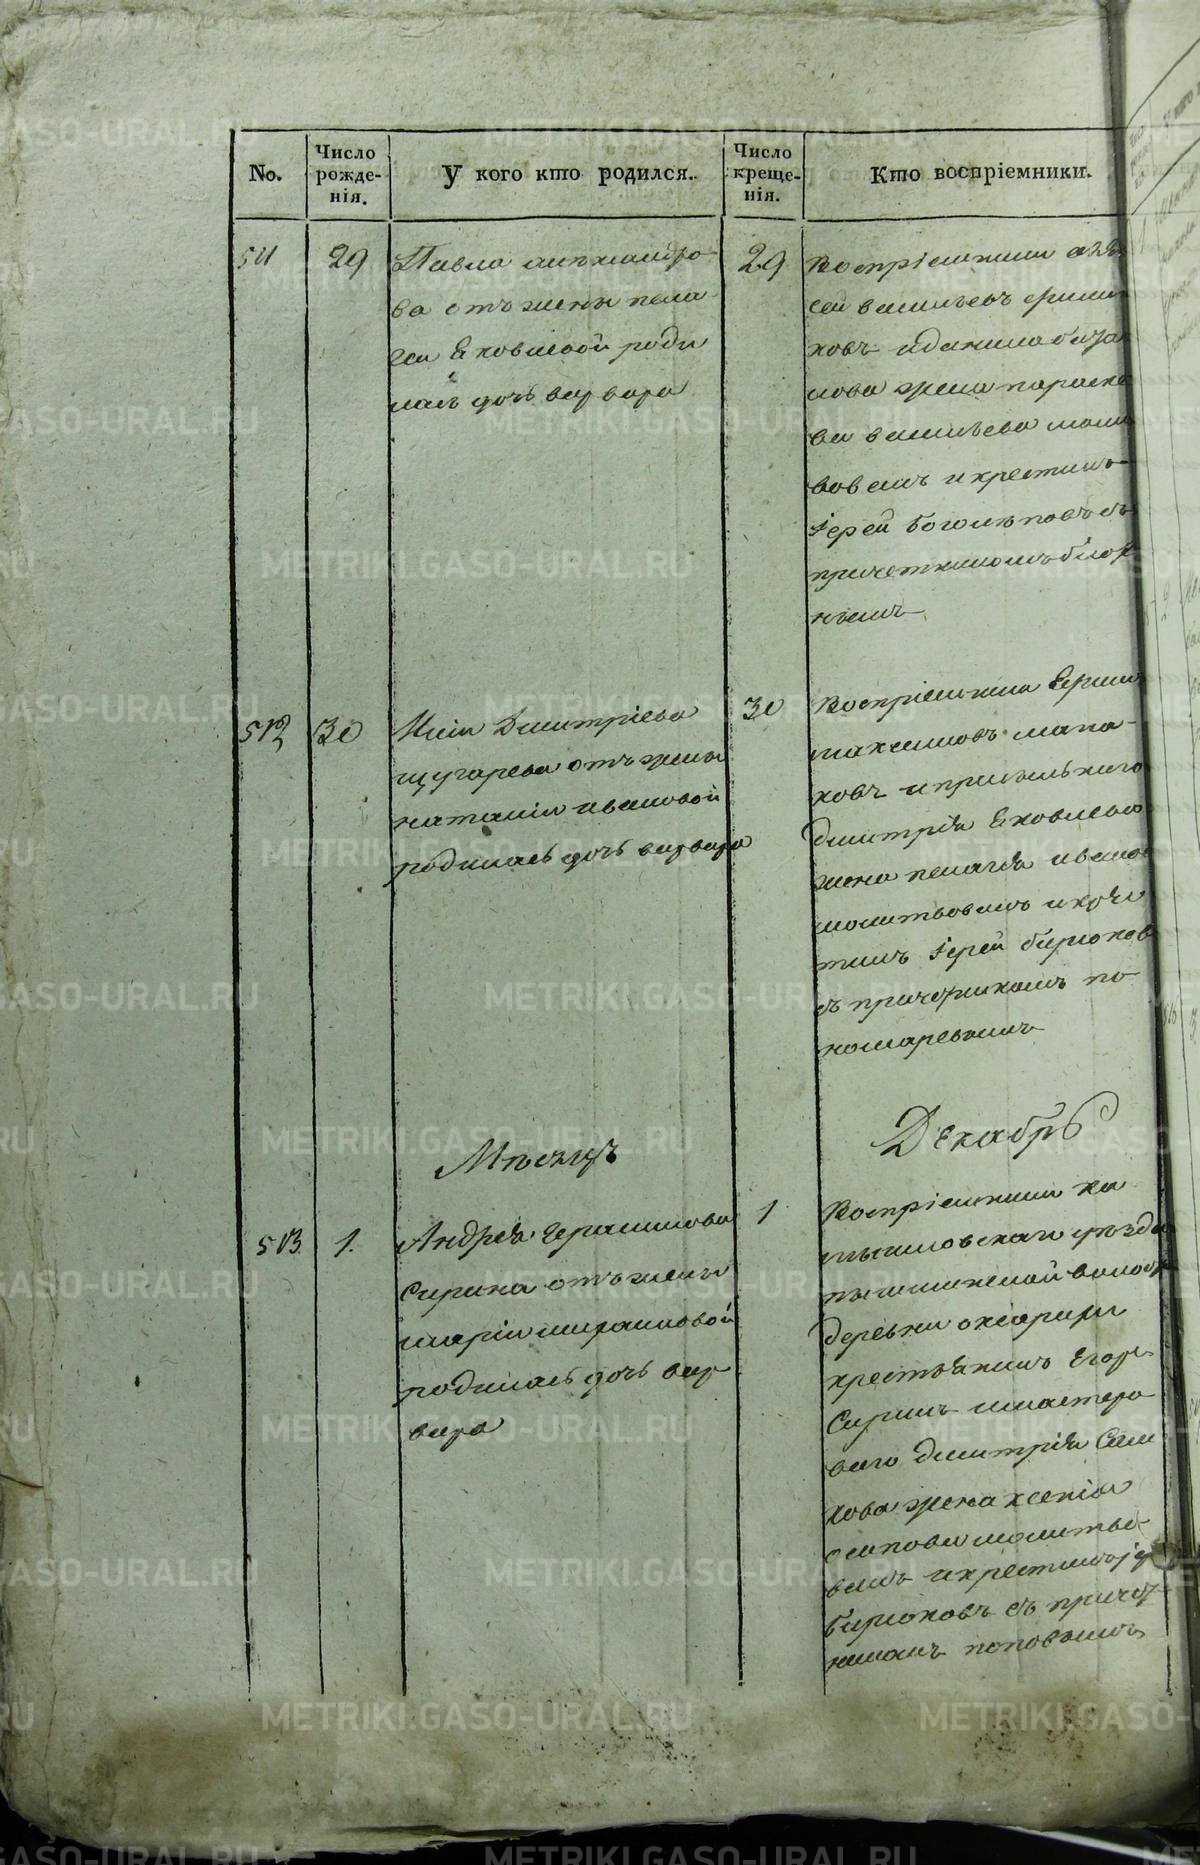 No.
Число рожде-нія.
У кого кто родился.
Число креще-нія.
Кто воспріемники.
511
29
Павла александро
ва отъ жены пела
геи Яковлевой роди
лась дочь варвара
29
Воспріемники
сей васильевъ
ковъ и данила
лова жена параске
ва васильева молит
вовалъ и крестилъ
Іерей боголѣповъ съ
причетникомъ
нымъ
512
30
Дмитріева
щугарева отъ жены
наталіи ивановой
родилась дочь варвара
30
Воспріемники
максимовъ
ковъ и
дмитрія Яковлева
жена пелагія иванов
молитвовалъ и крѣс
тилъ Іерей бирюков
съ причетникомъ по
номаревымъ
Мѣсяцъ
Декабрь
513
1.
Андрея Герасимова
Сирина отъ жены
маріи
родилась дочь вар
вара
1
Воспріемники ка
мышловскаго уѣзда
пышминской волос
деревни
крестьянинъ Егоръ
Сиринъ и мастеро
ваго дмитрія
кова жена ксенія
осипова молитво
валъ и крестилъ
бирюковъ съ причет
никомъ поповымъ
METRIKI.GASO-URAL.RU